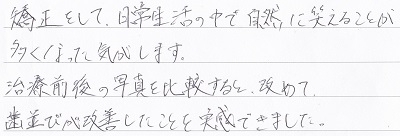 矯正をして、日常生活の中で自然に笑えることが
多くなった気がします。
治療前後の写真を比較すると、改めて、
歯並びが改善したことを実感できました。